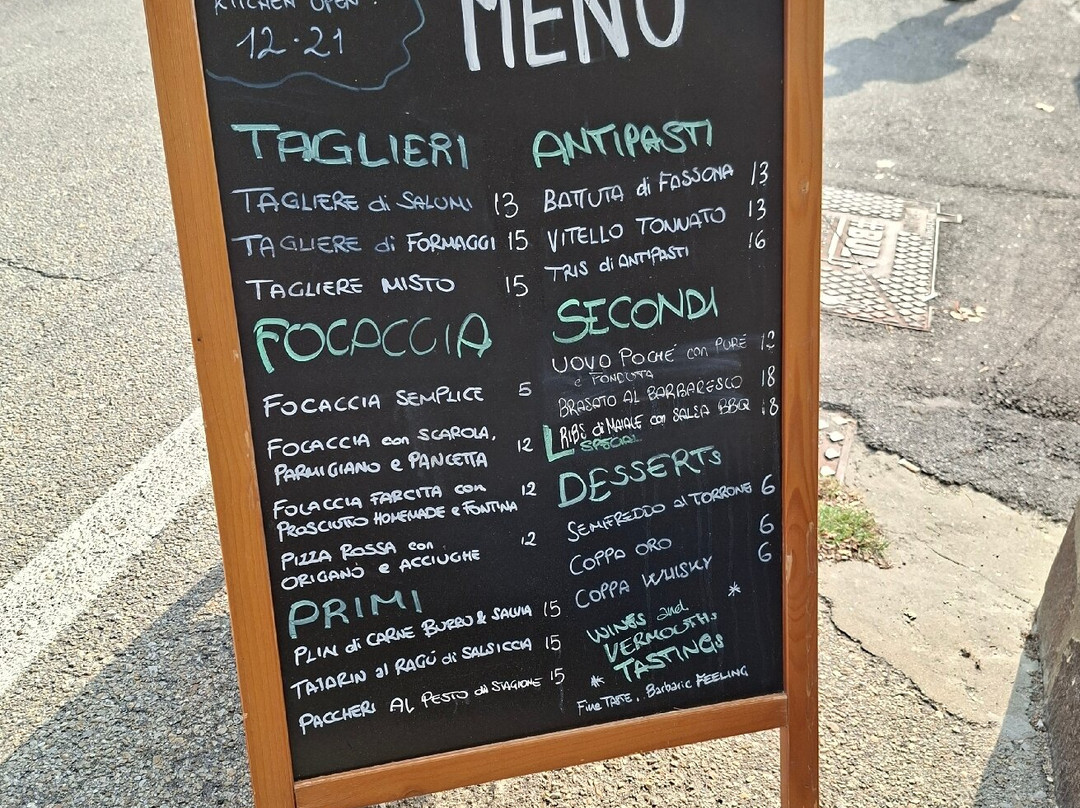 KITCHEN OPEN:
12.21
MENÙ
TAGLIERI
TAGLIERE di SALUMI 13
TAGLIERE di FORMAGGI 15
TAGLIERE MISTO 15
FOCACCIA
FOCACCIA SEMPLICE 5
FOCACCIA con SCAROLA, 12
PARMIGIANO e PANCETTA
FOCACCIA FARCITA con 12
PROSCIUTTO HOMEMADE e FONTINA
PIZZA ROSSA con 12
ORIGANO e ACCIUGHE
PRIMI
PLIN di CARNE BURRO & SALVIA 15
TAJARIN al RAGÚ di SALSICCIA 15
PACCHERI AL PESTO di STAGIONE 15
ANTIPASTI
BATTUTA di FASSONA 13
VITELLO TONNATO 13
TRIS di ANTIPASTI 16
SECONDI
UOVO POCHÉ con PURÈ 12
e FONDUTA
BRASATO AL BARBARESCO 18
RIBS di MAIALE con SALSA BBQ 18
SPECIAL
DESSERTs
SEMIFREDDO al TORRONE 6
COPPA ORO 6
COPPA WHISKY 6
*
WINES and
VERMOUTHs
* TASTINGs
Fine TASTE, Barbaric FEELING